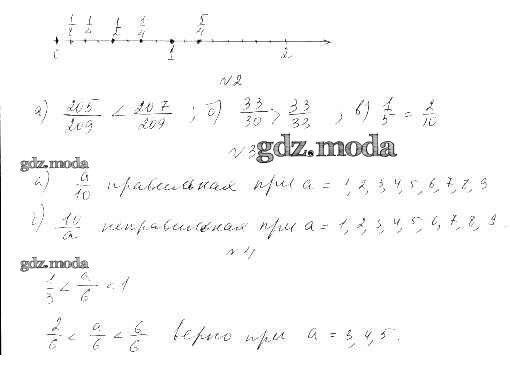 1/8 1/4 1/2 3/4 5/4
0 1 2
№2
а) 205/209 < 207/209 ; б) 33/30 > 33/32 ; в) 1/5 = 2/10
№3
gdz.moda
gdz.moda
а) a/10 правильная при a = 1, 2, 3, 4, 5, 6, 7, 8, 9
б) 10/a неправильная при a = 1, 2, 3, 4, 5, 6, 7, 8, 9.
№4
gdz.moda
1/3 < a/6 < 1
2/6 < a/6 < 6/6 верно при a = 3, 4, 5.